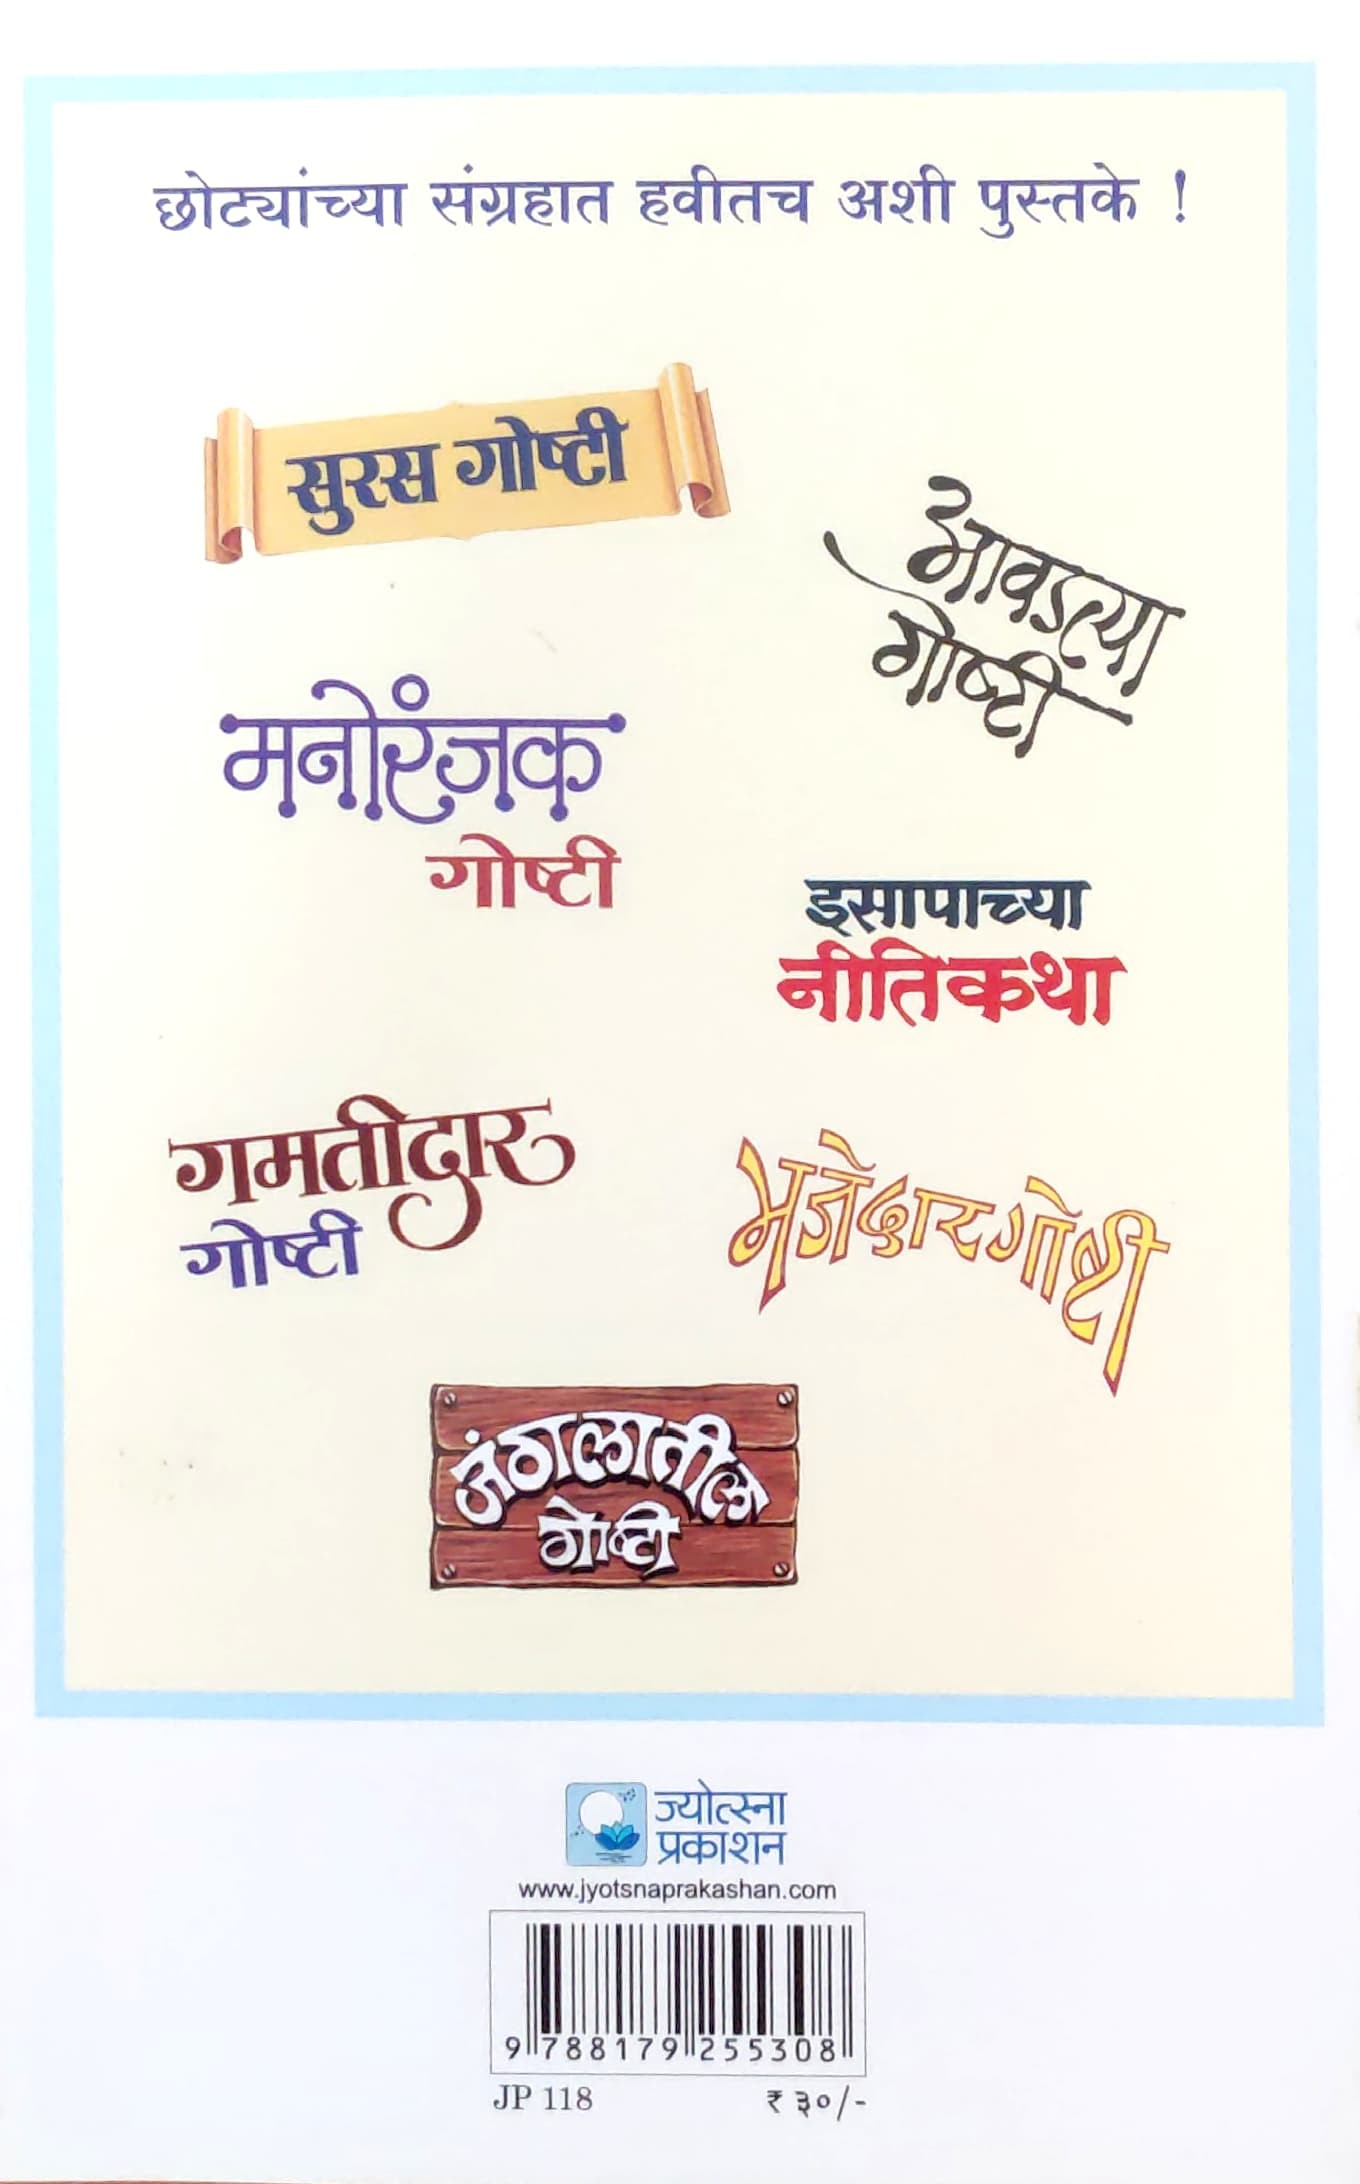 छोट्यांच्या संग्रहात हवीतच अशी पुस्तके !
सुरस गोष्टी
आवडत्या
गोष्टी
मनोरंजक
गोष्टी
इसापाच्या
नीतिकथा
गमतीदार
गोष्टी
मजेदार गोष्टी
जंगलातील
गोष्टी
ज्योत्स्ना
प्रकाशन
www.jyotsnaprakashan.com
9 788179 255308
JP 118
₹ ३०/-